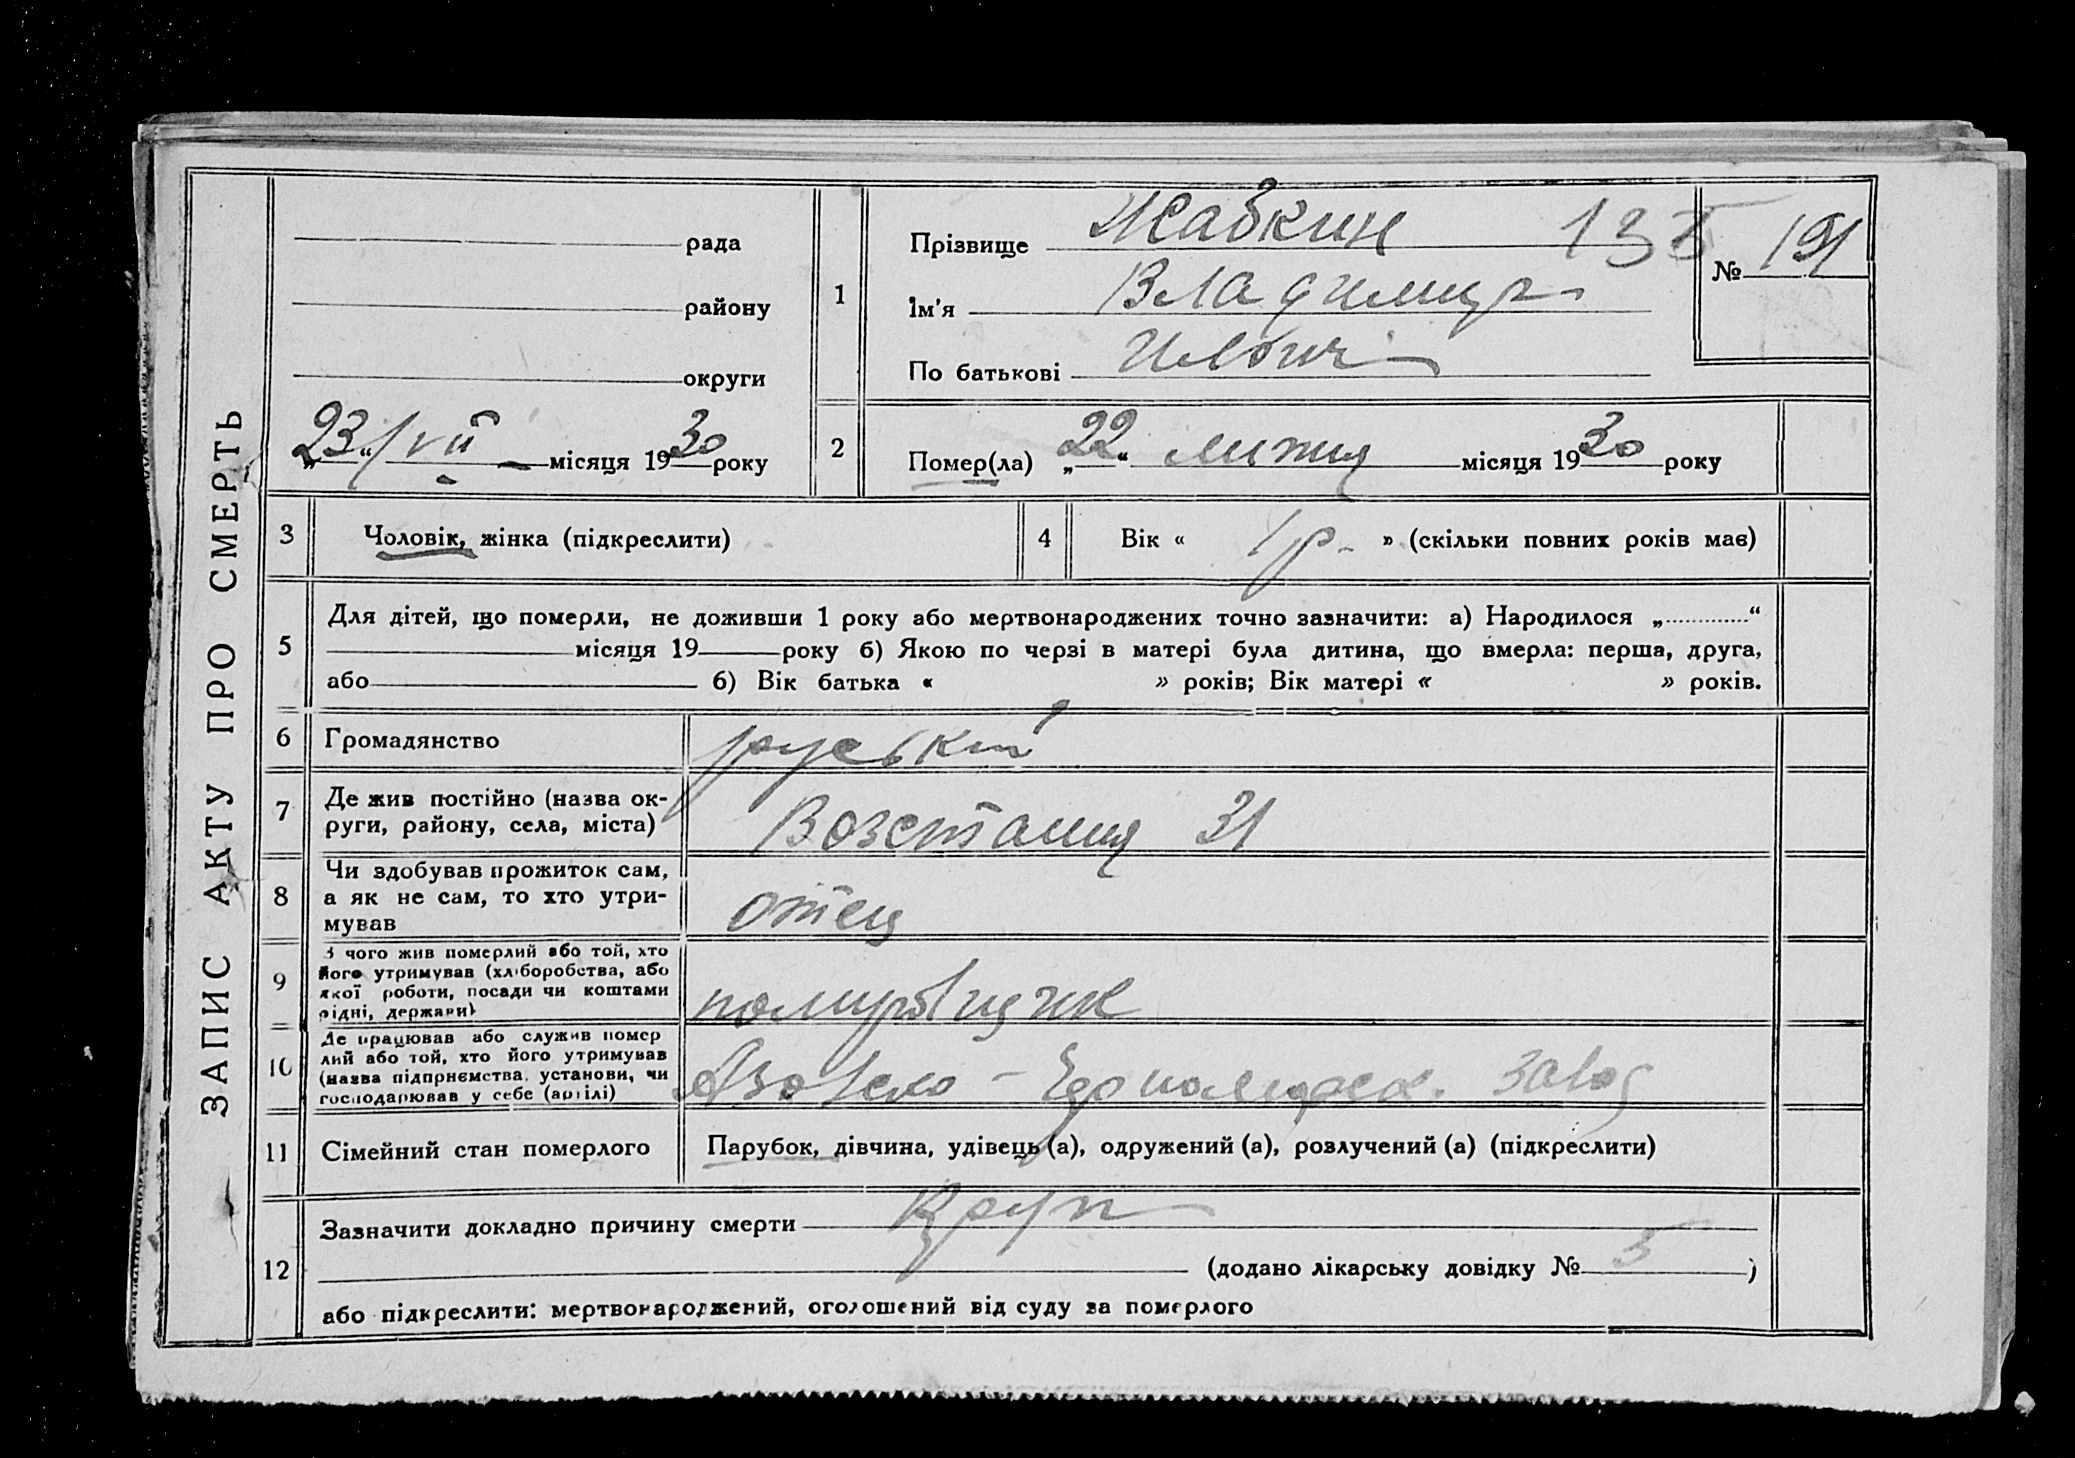 ЗАПИС АКТУ ПРО СМЕРТЬ
рада
району
округи
„23“ /VII місяця 1930 року
1
Прізвище Жабкин 135
Ім'я Владимир
По батькові Ильич
№ 191
2
Помер(ла) „22“ липня місяця 1930 року
3 Чоловік, жінка (підкреслити)
4 Вік « 1 р. » (скільки повних років має)
5
Для дітей, що померли, не доживши 1 року або мертвонароджених точно зазначити: а) Народилося „.............“
місяця 19 року б) Якою по черзі в матері була дитина, що вмерла: перша, друга,
або б) Вік батька « » років; Вік матері « » років.
6 Громадянство руський
7 Де жив постійно (назва ок-
руги, району, села, міста)
Возстания 31
8 Чи здобував прожиток сам,
а як не сам, то хто утри-
мував
отец
9 З чого жив померлий або той, хто
його утримував (хліборобства, або
якої роботи, посади чи коштами
рідні, держави)
10 Де працював або служив помер
лий або той, хто його утримував
(назва підприємства, установи, чи
господарював у себе (артілі)
Азовско - завод
11 Сімейний стан померлого Парубок, дівчина, удівець (а), одружений (а), розлучений (а) (підкреслити)
12
Зазначити докладно причину смерти Круп
(додано лікарську довідку № 5 )
або підкреслити: мертвонароджений, оголошений від суду за померлого